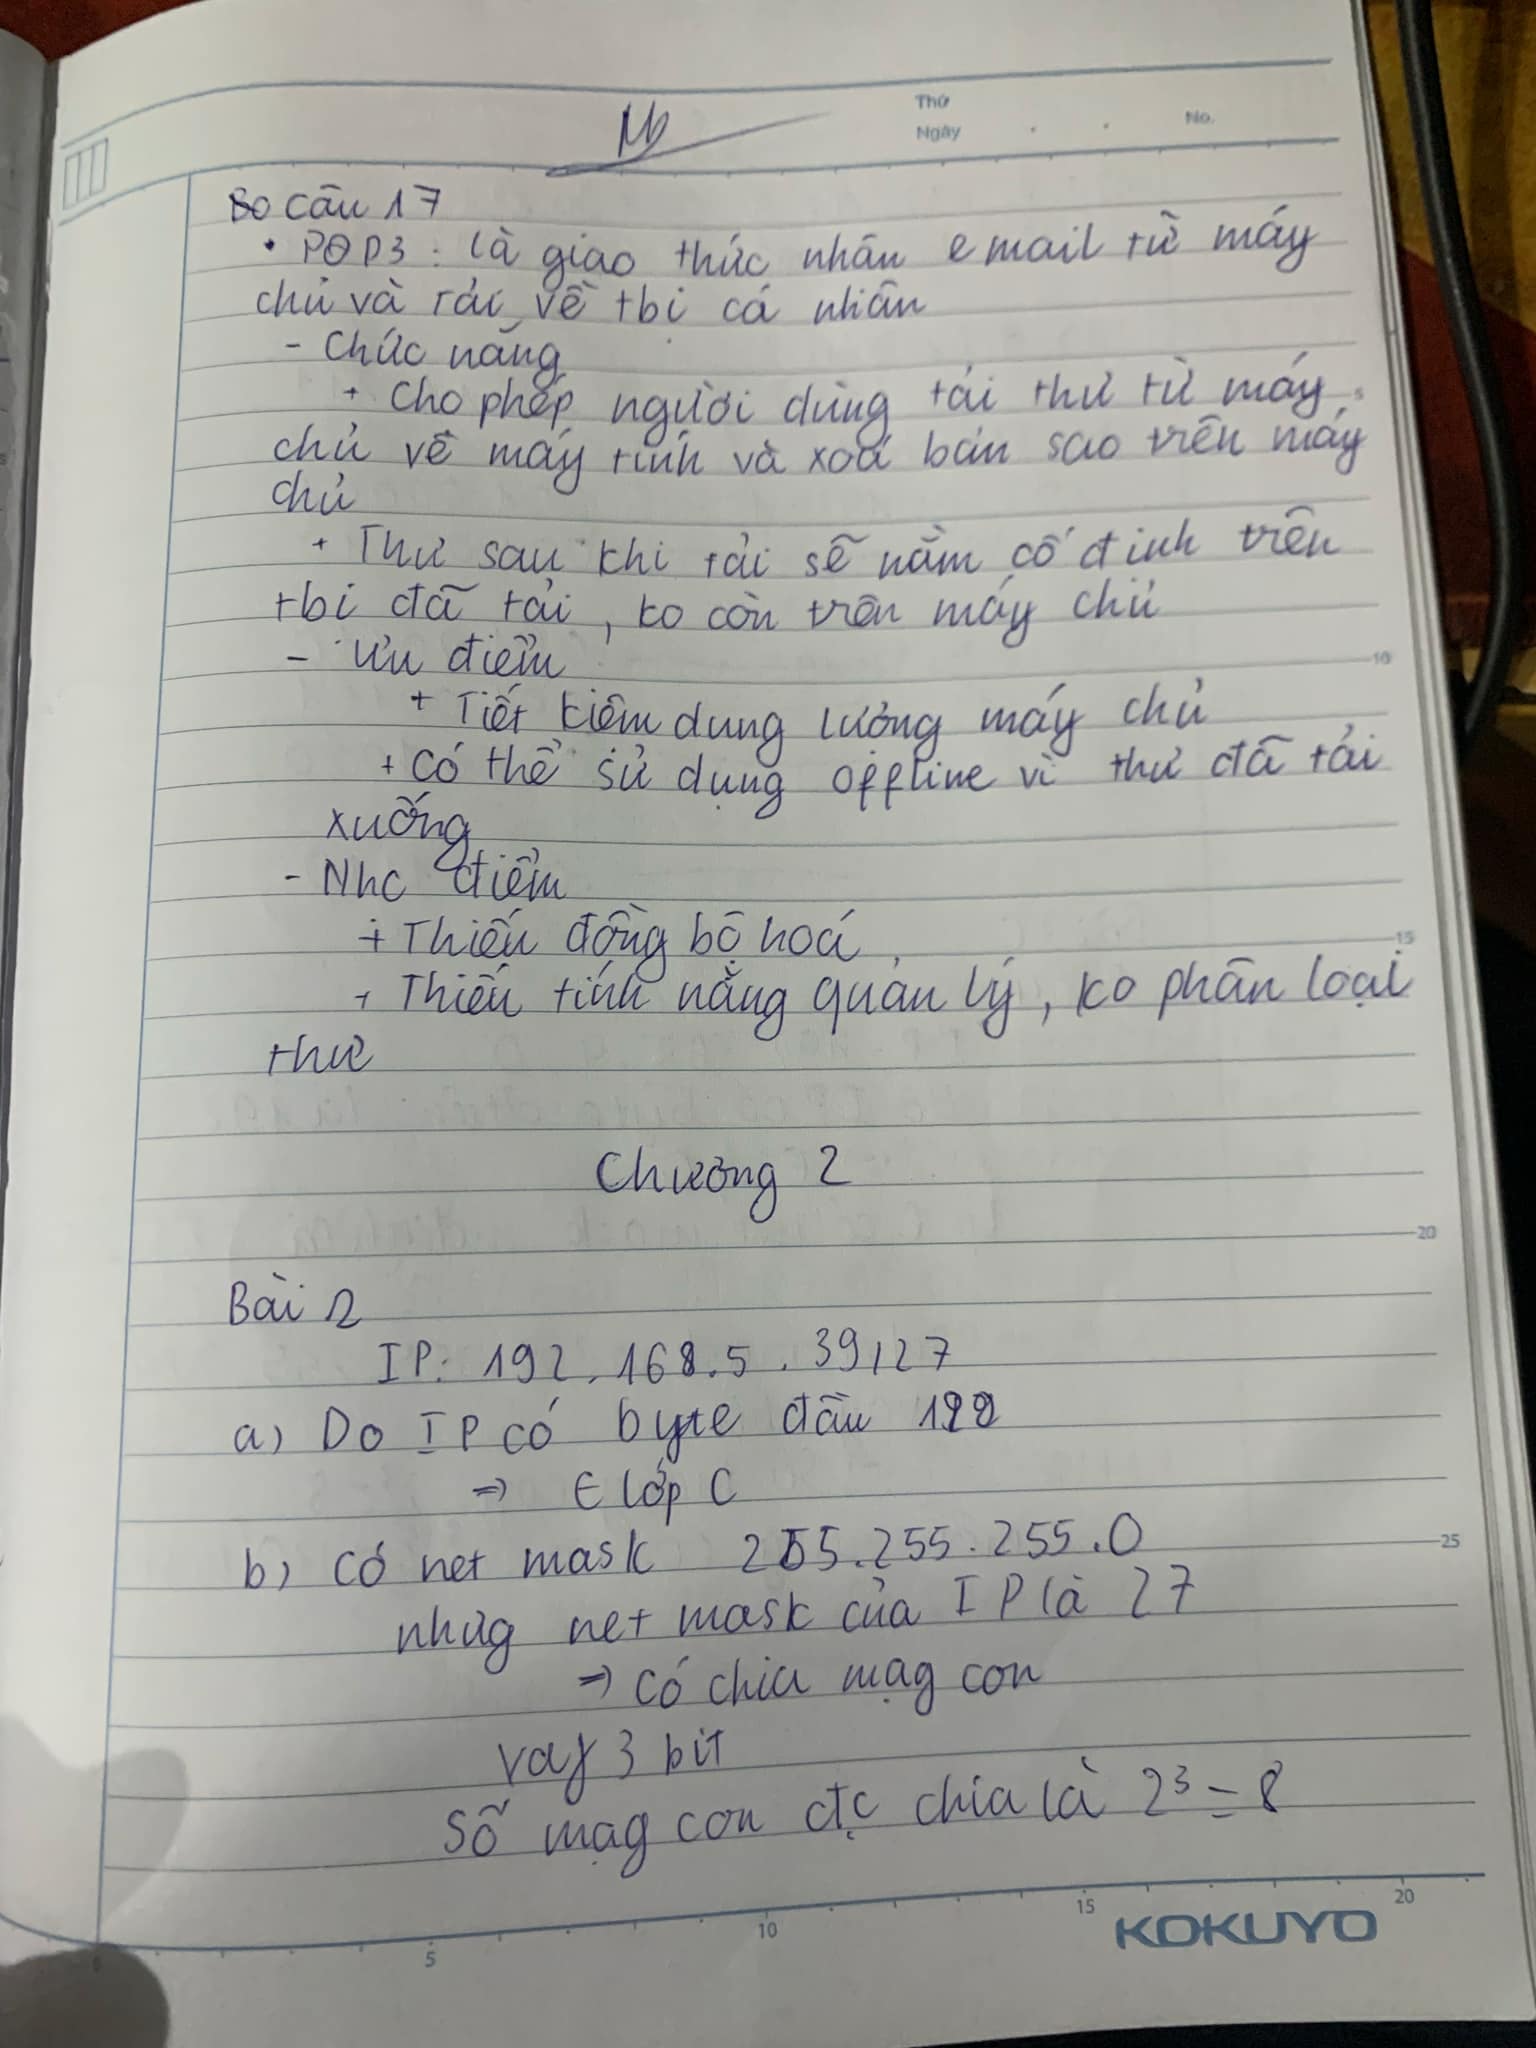 Thứ
Ngày . . No.
Bo câu 17
• POP3 : là giao thức nhận email từ máy
chủ và tải về tbị cá nhân
- Chức năng
+ Cho phép người dùng tải thư từ máy
chủ về máy tính và xoá bản sao trên máy
chủ
+ Thư sau khi tải sẽ nằm cố định trên
tbị đã tải, ko còn trên máy chủ
- Ưu điểm
+ Tiết kiệm dung lượng máy chủ
+ Có thể sử dụng offline vì thư đã tải
xuống
- Nhc điểm
+ Thiếu đồng bộ hoá
+ Thiếu tính năng quản lý, ko phân loại
thư
Chương 2
Bài 2
IP: 192.168.5.39/27
a) Do IP có byte đầu 192
⇒ ∈ lớp C
b) Có net mask 255.255.255.0
nhưg net mask của IP là 27
⇒ có chia mạg con
vay 3 bit
Số mạg con đc chia là 2³ = 8
10
15
20
25
5 10 15 20
KOKUYO